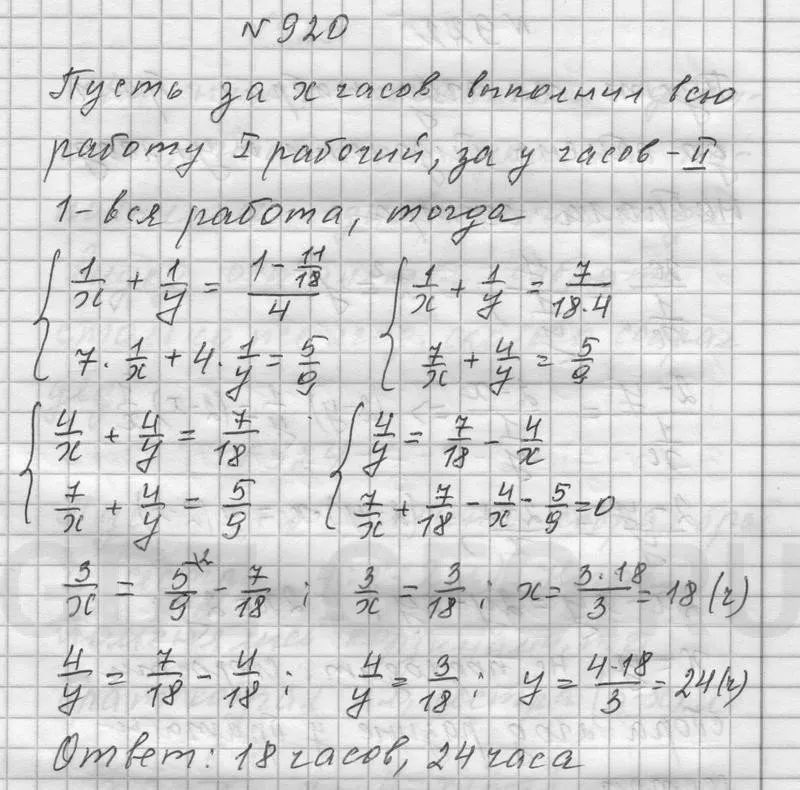 №920
Пусть за x часов выполнил всю
работу I рабочий, за y часов - II
1 - вся работа, тогда
{ 1/x + 1/y = (1 - 11/18)/4 { 1/x + 1/y = 7/(18·4)
7 · 1/x + 4 · 1/y = 5/9 7/x + 4/y = 5/9
{ 4/x + 4/y = 7/18 { 4/y = 7/18 - 4/x
7/x + 4/y = 5/9 7/x + 7/18 - 4/x - 5/9 = 0
3/x = 5/9 \2 - 7/18 ; 3/x = 3/18 ; x = (3·18)/3 = 18 (ч)
4/y = 7/18 - 4/18 ; 4/y = 3/18 ; y = (4·18)/3 = 24 (ч)
Ответ: 18 часов, 24 часа